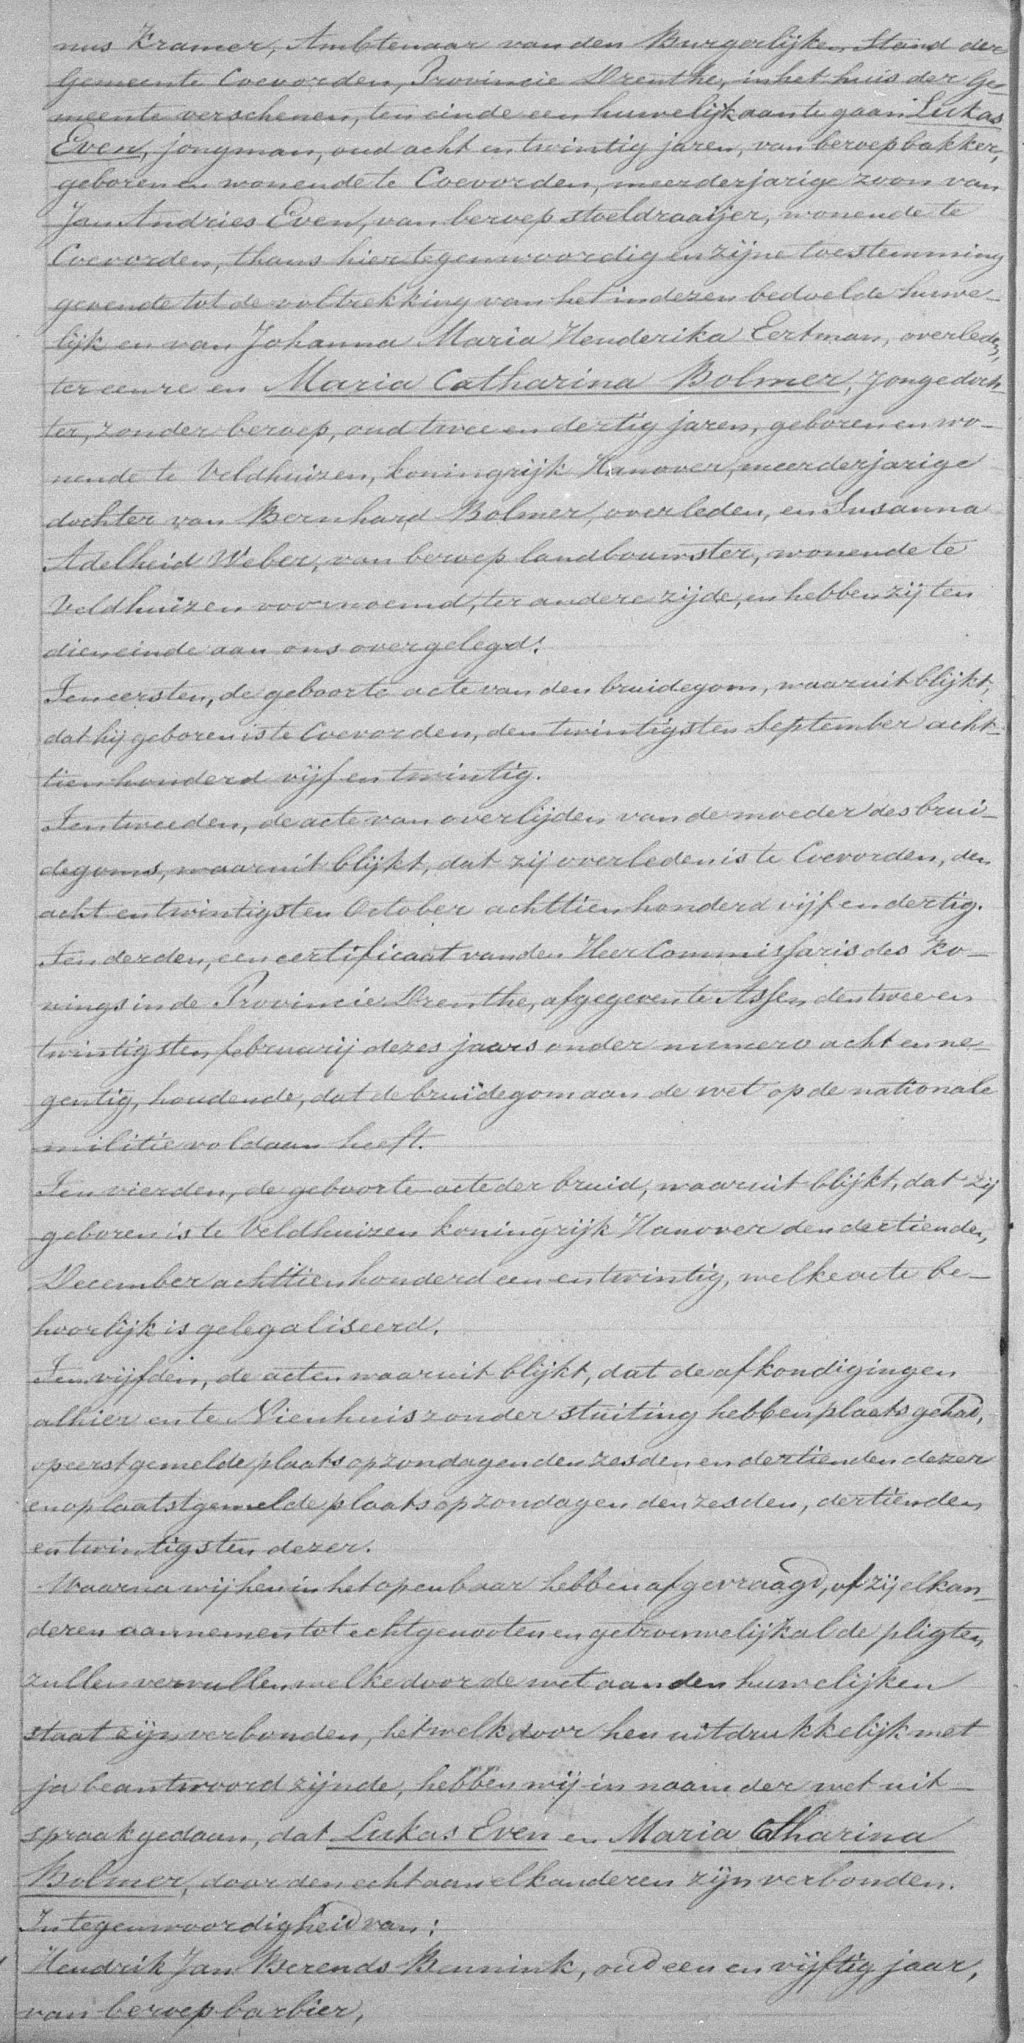 nus Kramer, Ambtenaar van den Burgerlijken Stand der
Gemeente Coevorden, Provincie Drenthe, in het huis der Ge-
meente verschenen, ten einde een huwelijk aan te gaan Lukas
Even, jongman, oud acht en twintig jaren, van beroep bakker,
geboren en wonende te Coevorden, meerderjarige zoon van
Jan Andries Even, van beroep stoeldraaijer, wonende te
Coevorden, thans hier tegenwoordig en zijne toestemming
gevende tot de voltrekking van het in dezen bedoelde huwe-
lijk en van Johanna Maria Henderika Eertman, overleden,
ter eenre en Maria Catharina Bolmer, jongedoch-
ter, zonder beroep, oud twee en dertig jaren, geboren en wo-
nende te Veldhuizen, koningrijk Hanover, meerderjarige
dochter van Bernhard Bolmer, overleden, en Susanna
Adelheid Weber, van beroep landbouwster, wonende te
Veldhuizen voornoemd, ter andere zijde, en hebben zij ten
dien einde aan ons overgelegd:
Ten eersten, de geboorte acte van den bruidegom, waaruit blijkt,
dat hij geboren is te Coevorden, den twintigsten September acht-
tien honderd vijf en twintig.
Ten tweeden, de acte van overlijden van de moeder des brui-
degoms, waaruit blijkt, dat zij overleden is te Coevorden, den
acht en twintigsten October achttien honderd vijf en dertig.
Ten derden, een certificaat van den Heer Commissaris des Ko-
nings in de Provincie Drenthe, afgegeven te Assen den twee en
twintigsten februarij dezes jaars onder numero acht en ne-
gentig, houdende, dat de bruidegom aan de wet op de nationale
militie voldaan heeft.
Ten vierden, de geboorte acte der bruid, waaruit blijkt, dat zij
geboren is te Veldhuizen koningrijk Hanover den dertienden
December achttien honderd een en twintig, welke acte be-
hoorlijk is gelegaliseerd.
Ten vijfden, de acten waaruit blijkt, dat de afkondigingen
alhier en te Nienhuis zonder stuiting hebben plaats gehad,
op eerstgemelde plaats op zondagen den zesden en dertienden dezer
en op laatstgemelde plaats op zondagen den zesden, dertienden
en twintigsten dezer.
Waarna wij hen in het openbaar hebben afgevraagd, of zij elkan-
deren aannemen tot echtgenooten en getrouwelijk al de pligten
zullen vervullen, welke door de wet aan den huwelijken
staat zijn verbonden, hetwelk door hen uitdrukkelijk met
ja beantwoord zijnde, hebben wij in naam der wet uit-
spraak gedaan, dat Lukas Even en Maria Catharina
Bolmer, door den echt aan elkanderen zijn verbonden.
In tegenwoordigheid van:
Hendrik Jan Berends Bennink, oud een en vijftig jaar,
van beroep barbier,